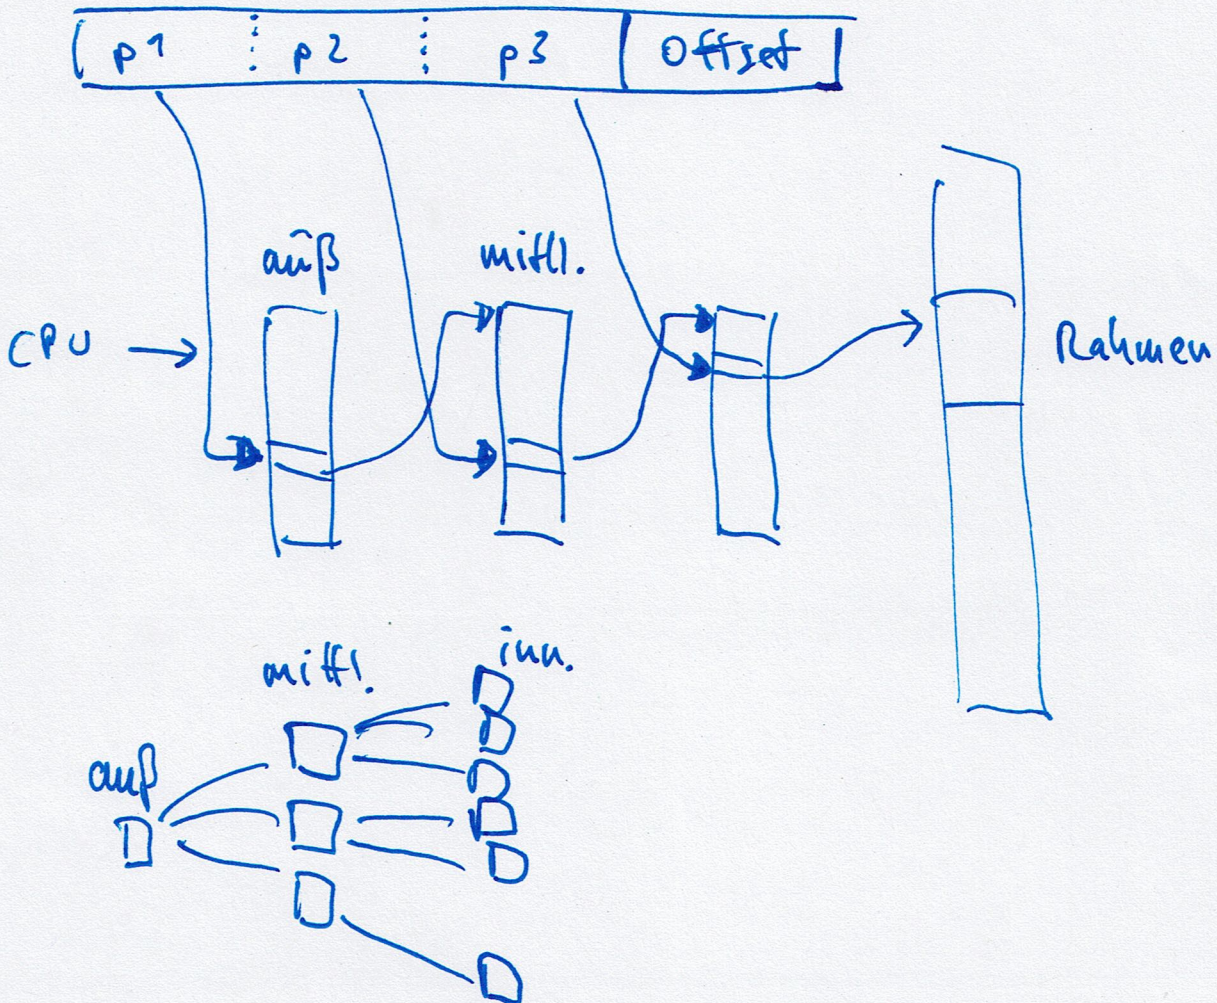 p1 p2 p3 Offset
auß
mittl.
CPU
Rahmen
mittl.
inn.
auß